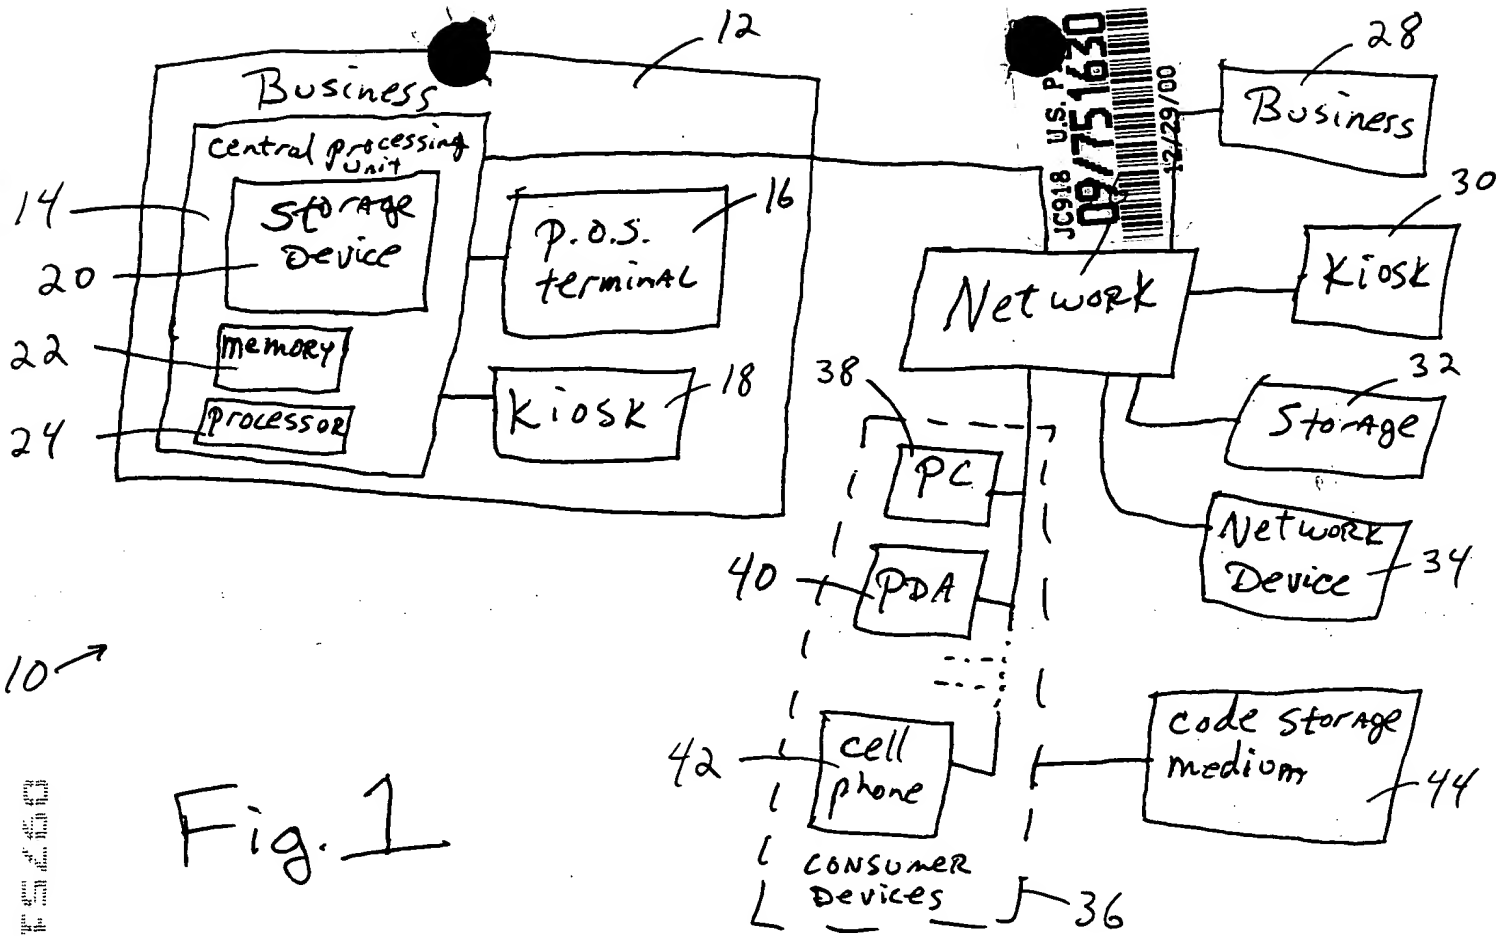 12
Business
central processing
unit
14
Storage
Device
20
P.O.S.
terminal
16
22
memory
24
processor
Kiosk
18
JC918 U.S. P
09/751630
12/29/00
28
Business
30
Kiosk
Network
32
Storage
Network
Device
34
38
PC
40
PDA
42
cell
phone
Consumer
Devices
36
code storage
medium
44
10
Fig. 1